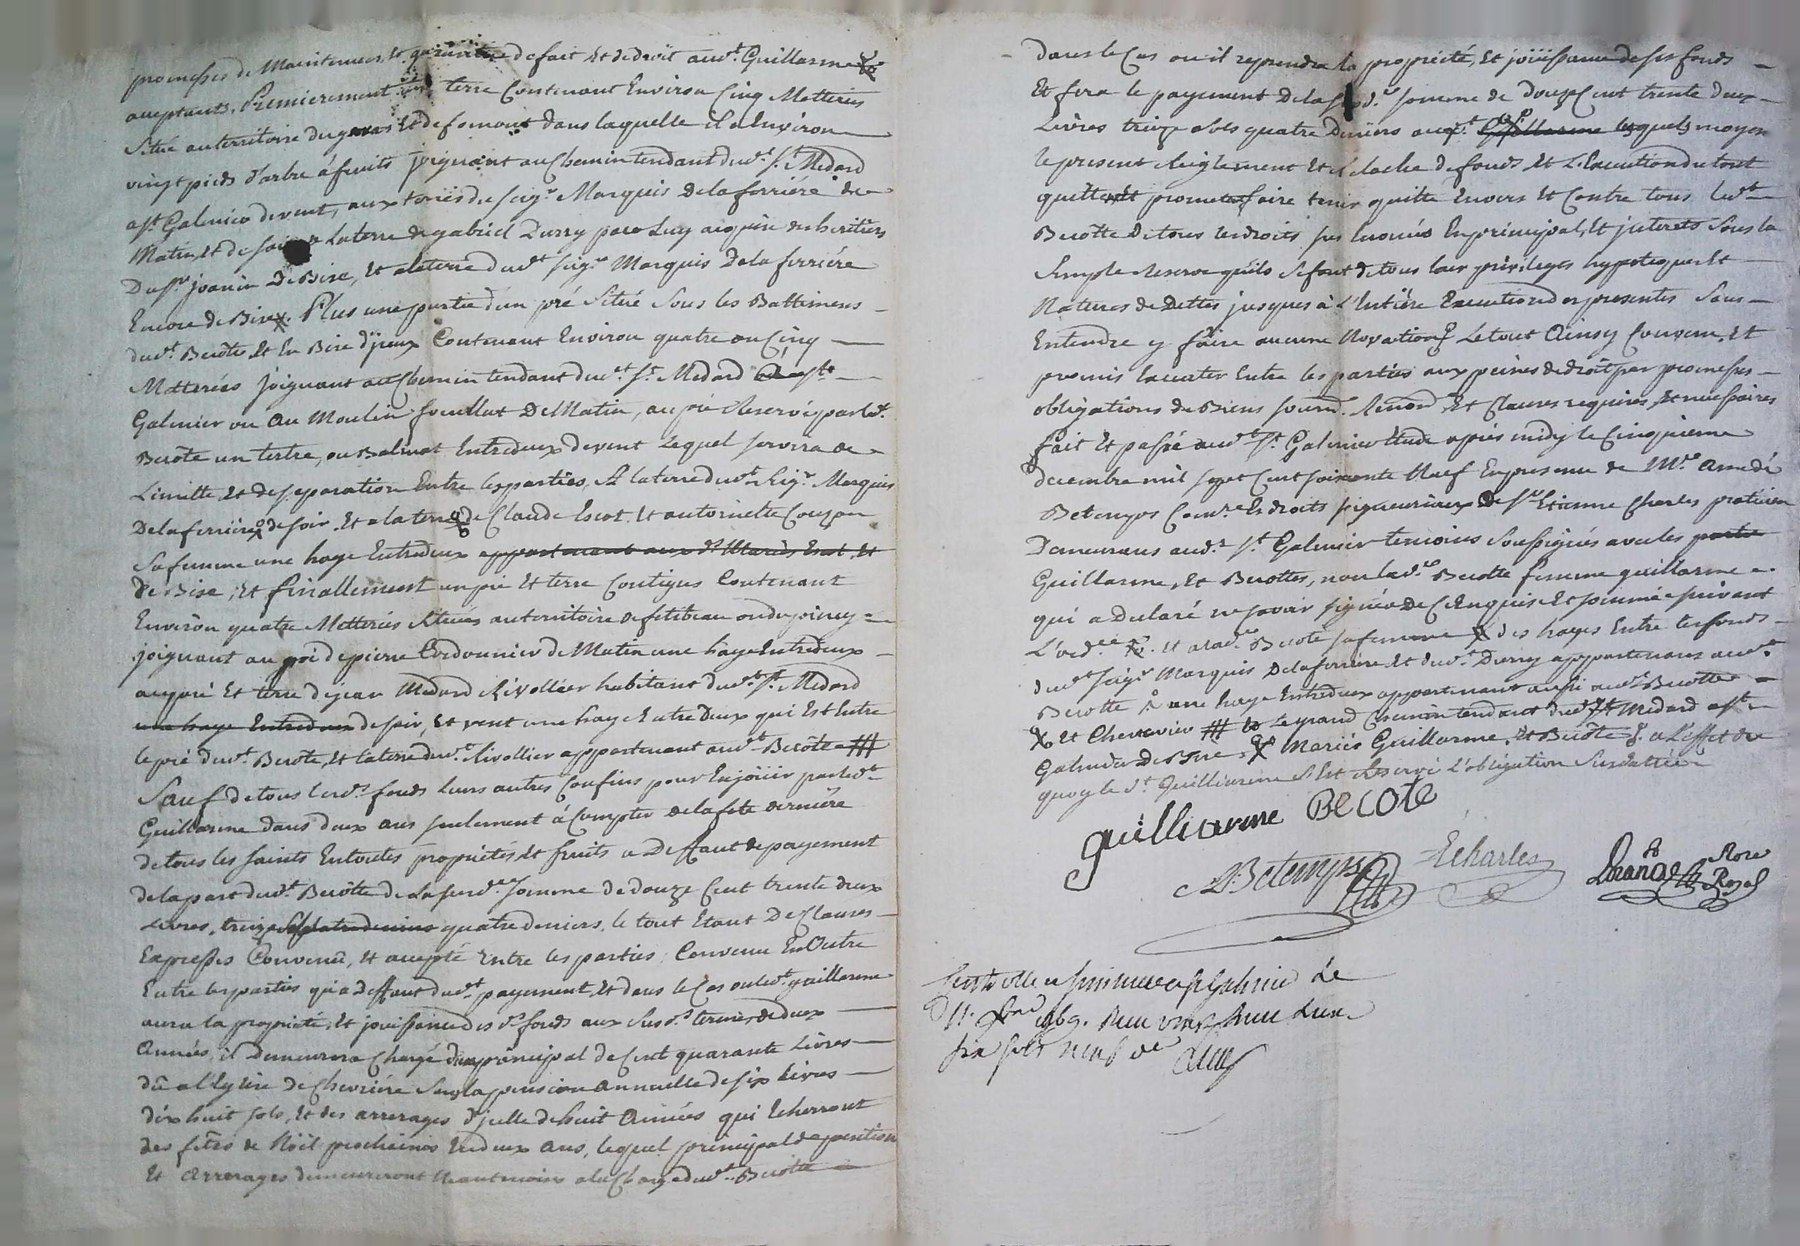 promesses de Maintenues, et garantie de fait et de droit aud.t Guillarme
acceptants, Premierement terre Contenant Environ Cinq Metterées
Situé au territoire du et de fomont dans laquelle il a Environ
vingt pieds d'arbre à fruits joignant au Chemin tendant dud.t S.t Médard
a S.t Galmier de vent, aux terres du Seig.r Marquis Delaferriére de
Matin, et de soir a Laterre de gabriel Durry par Luy acquise des heritiers
Du S.r joanin De Bise, et a laterre dud.t Seig.r Marquis Delaferriére
Encore de Bise. Plus une partie d'un pré Situé Sous les Battimens
dud.t Becôte, et En Bise d'jceux Contenant Environ quatre ou Cinq
Metterées joignant au Chemin tendant dud.t S.t Médard a S.t
Galmier ou au Moulin fouillat De Matin, au pré Reservé par led.t
Becote un tertre, ou Balmat Entredeux de vent Lequel servira de
Limitte, et de separation Entre les parties, A laterre dud.t Seig.r Marquis
Delaferriére de soir, Et a la terre de Claude Escot, et antoinette Couzon
Sa femme une haye Entredeux appartenant aux d.ts Mariés Escot, et
de Bise, Et finallement un pré Et terre Contigus Contenant
Environ quatre Metterées Situés au territoire de fetibeau ou de joincy
joignant au pré de pierre Cordonnier de Matin une haye Entredeux
au pré Et terre de jean Médard Rivollier habitant dud.t S.t Médard
une haye Entredeux de soir, et vent une haye Entre Deux qui Est Entre
le pré dud.t Becôte, et laterre dud.t Rivollier appartenant aud.t Becôte
Sauf de tous lesd.s fonds leurs autres Confins pour En joüir par led.t
Guillarme dans deux ans seulement à Compter de la fete derniére
de tous les Saints En toutes proprietés, et fruits a Deffaut de payement
de la part dud.t Becôte de La susd.e Somme de douze Cent trente deux
Livres, treize Sols quatre deniers quatre deniers, le tout Etant De Clauses
Expresses Convenu, et accepté Entre les parties, Convenu En Outre
Entre les parties qu'a deffaut dud.t payement, Et dans le Cas ou led.t guillarme
aura la proprieté, et jouissance des d.s fonds aux Susd.s termes de deux
Années, il Demeurera Chargé d'un principal de Cent quarante Livres
dû a l'Eglise de Chevriére Sous la pension annuelle de six Livres
dix huit sols, et des arrerages d'jcelle de huit Années qui Echerront
des fêtes de Noël prochaines En deux ans, lequel principal de pension
Et arrerages demeureront Neantmoins a la Charge dud.t Becôtte
dans le Cas ou il reprendra la proprieté, Et joüissance de ses fonds
Et fera le payement De la susd.e somme de Douze Cent trente deux
Livres treize sols quatre Deniers aud.t Guillarme lesquels moyen
le present Reiglement Et Relache de fonds Et L'Execution du tout
quittent promettent faire tenir quitte Envers Et Contre tous led.t
Becotte De tous les droits En principal, Et jnterets Sous la
Simple reserve qu'ils se font de tous leur priviléges hypoteques Et
Natures de Dettes jusques à L'Entiére Execution des presentes Sans
Entendre y faire aucune Novation Le tout Ainsy Convenu, Et
promis Executer Entre les parties aux peines de droit par promesses
obligations de Biens soum.s Renon.s Et Clauses requises, Et necessaires
fait Et passé aud.t S.t Galmier Etude après midy le Cinquieme
decembre mil sept Cent soixante Neuf En presence de M.re Amedé
Betemps Com.re Es droits seigneuriaux De S.r Etienne Charles praticien
Demeurans aud.t S.t Galmier temoins Soussignés avec les partie
Guillarme, Et Becottes, non lad.e Becotte femme guillarme
qui a declaré ne savoir signé de ce Enquise Et sommée suivant
L'ord.ce et a lad.e Becote sa femme des hayes Entre les fonds
dud.t Seig.r Marquis Delaferriére, Et dud.t Durry appartenans aud.t
Becotte une haye Entredeux appartenant aussi aud.t Becotte
et Chenevier le grand Chemin tendant dud.t S.t Médard a S.t
Galmier De Bise, Mariés Guillarme, Et Becôte a L'Effet de
quoy le d.t Guilliarme S'Est Reservé L'obligation Susdattée
guilliarme BECOTE
Betemps ECharles
Rose
Royal
Controllé a S.t Galmier Le
1769. Reçu vingt
six sols neuf de